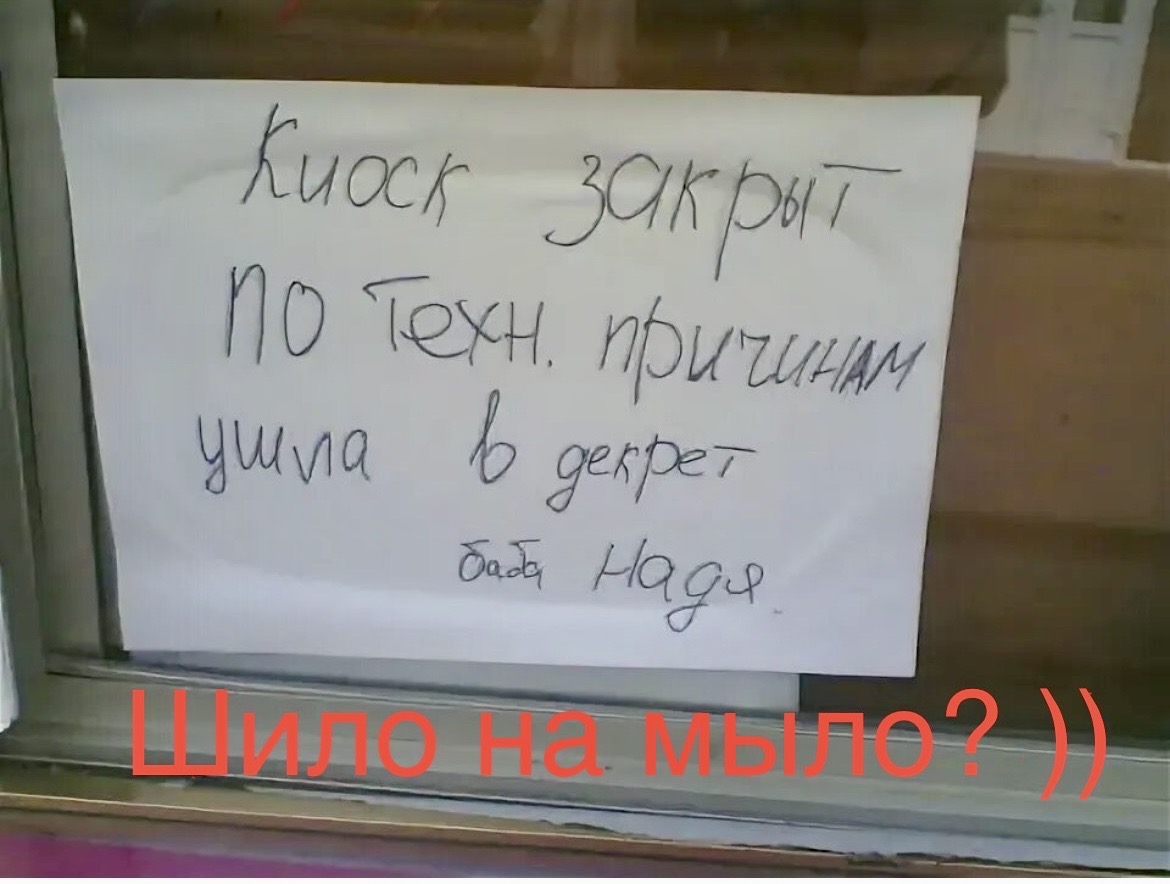 Киоск закрыт
по техн. причинам
ушла в декрет
баба Надя.
Шило на мыло? ))